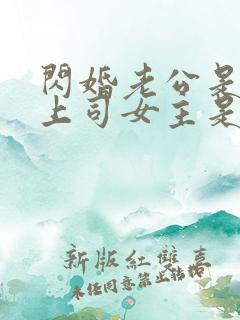 閃婚老公是
上司女主是
新版紅雙喜
未经同意禁止转载